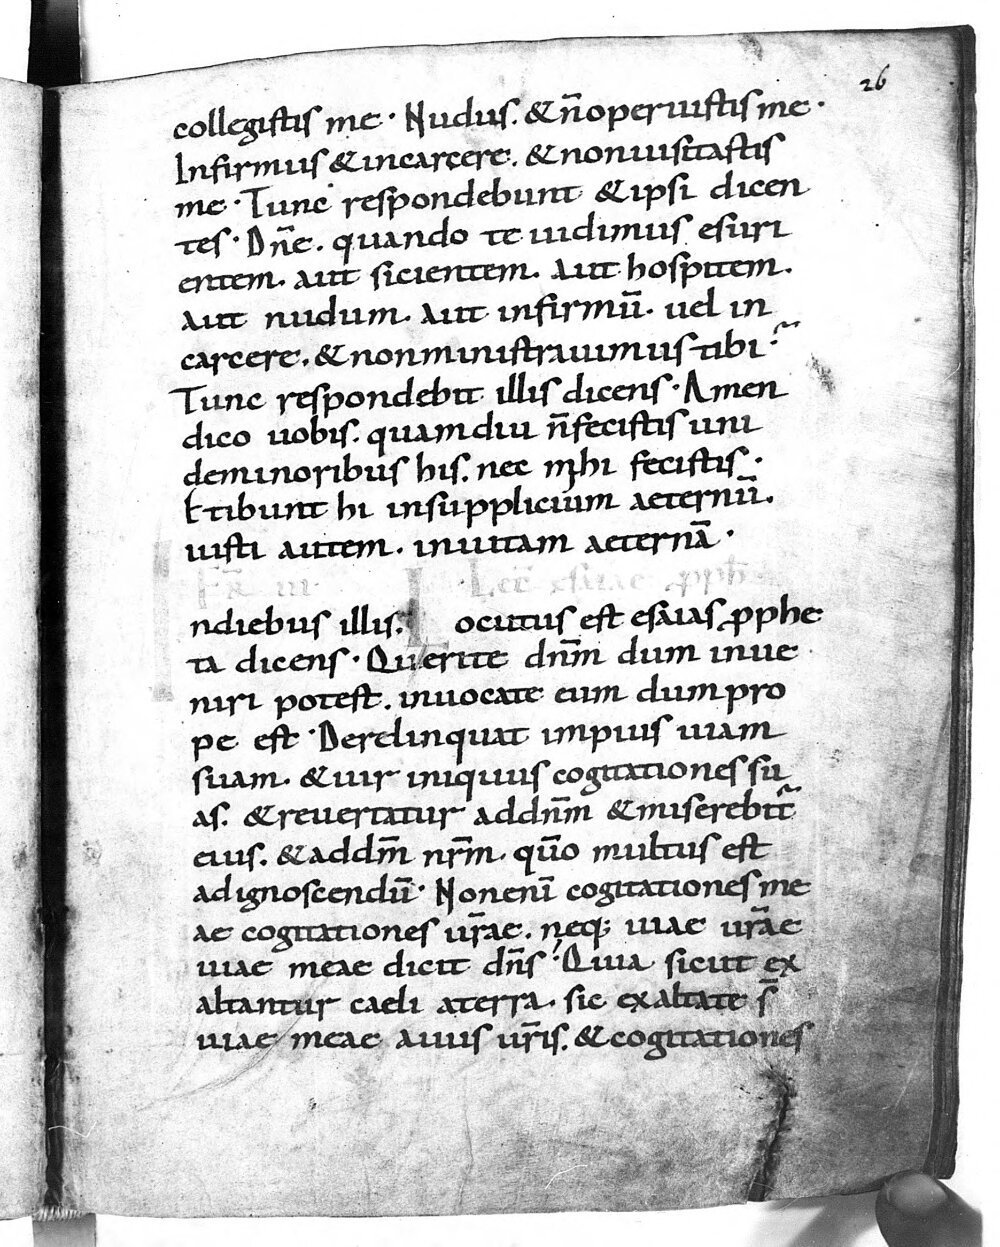 26
collegistis me · Nudus. &n̄operuistis me ·
Infirmus &incarcere. &nonuisitastis
me · Tunc respondebunt &ipsi dicen
tes · Dn̄e. quando te uidimus esuri
entem. aut sicientem. aut hospitem.
aut nudum. aut infirmū. uel in
carcere. &nonministrauimus tibi
Tunc respondebit illis dicens · Amen
dico uobis. quamdiu n̄fecistis uni
deminoribus his. nec mihi fecistis ·
Et ibunt hi insupplicium aeternū.
iusti autem. inuitam aeternā ·
Fr̄ III · Lec̄ esaiae pph̄
ndiebus illis. Locutus est esaias pphe
ta dicens · Querite dn̄m dum inue
niri potest. inuocate eum dum pro
pe est · Derelinquat impius uiam
suam. &uir iniquus cogitationes su
as. &reuertatur addn̄m &miserebit̄
eius. &addm̄ nr̄m. qūo multus est
adignoscendū · Nonenī cogitationes me
ae cogitationes ur̄ae. neq; uiae ur̄ae
uiae meae dicit dn̄s · Quia sicut ex
altantur caeli aterra. sic exaltate s̄
uiae meae auiis ur̄is. &cogitationes